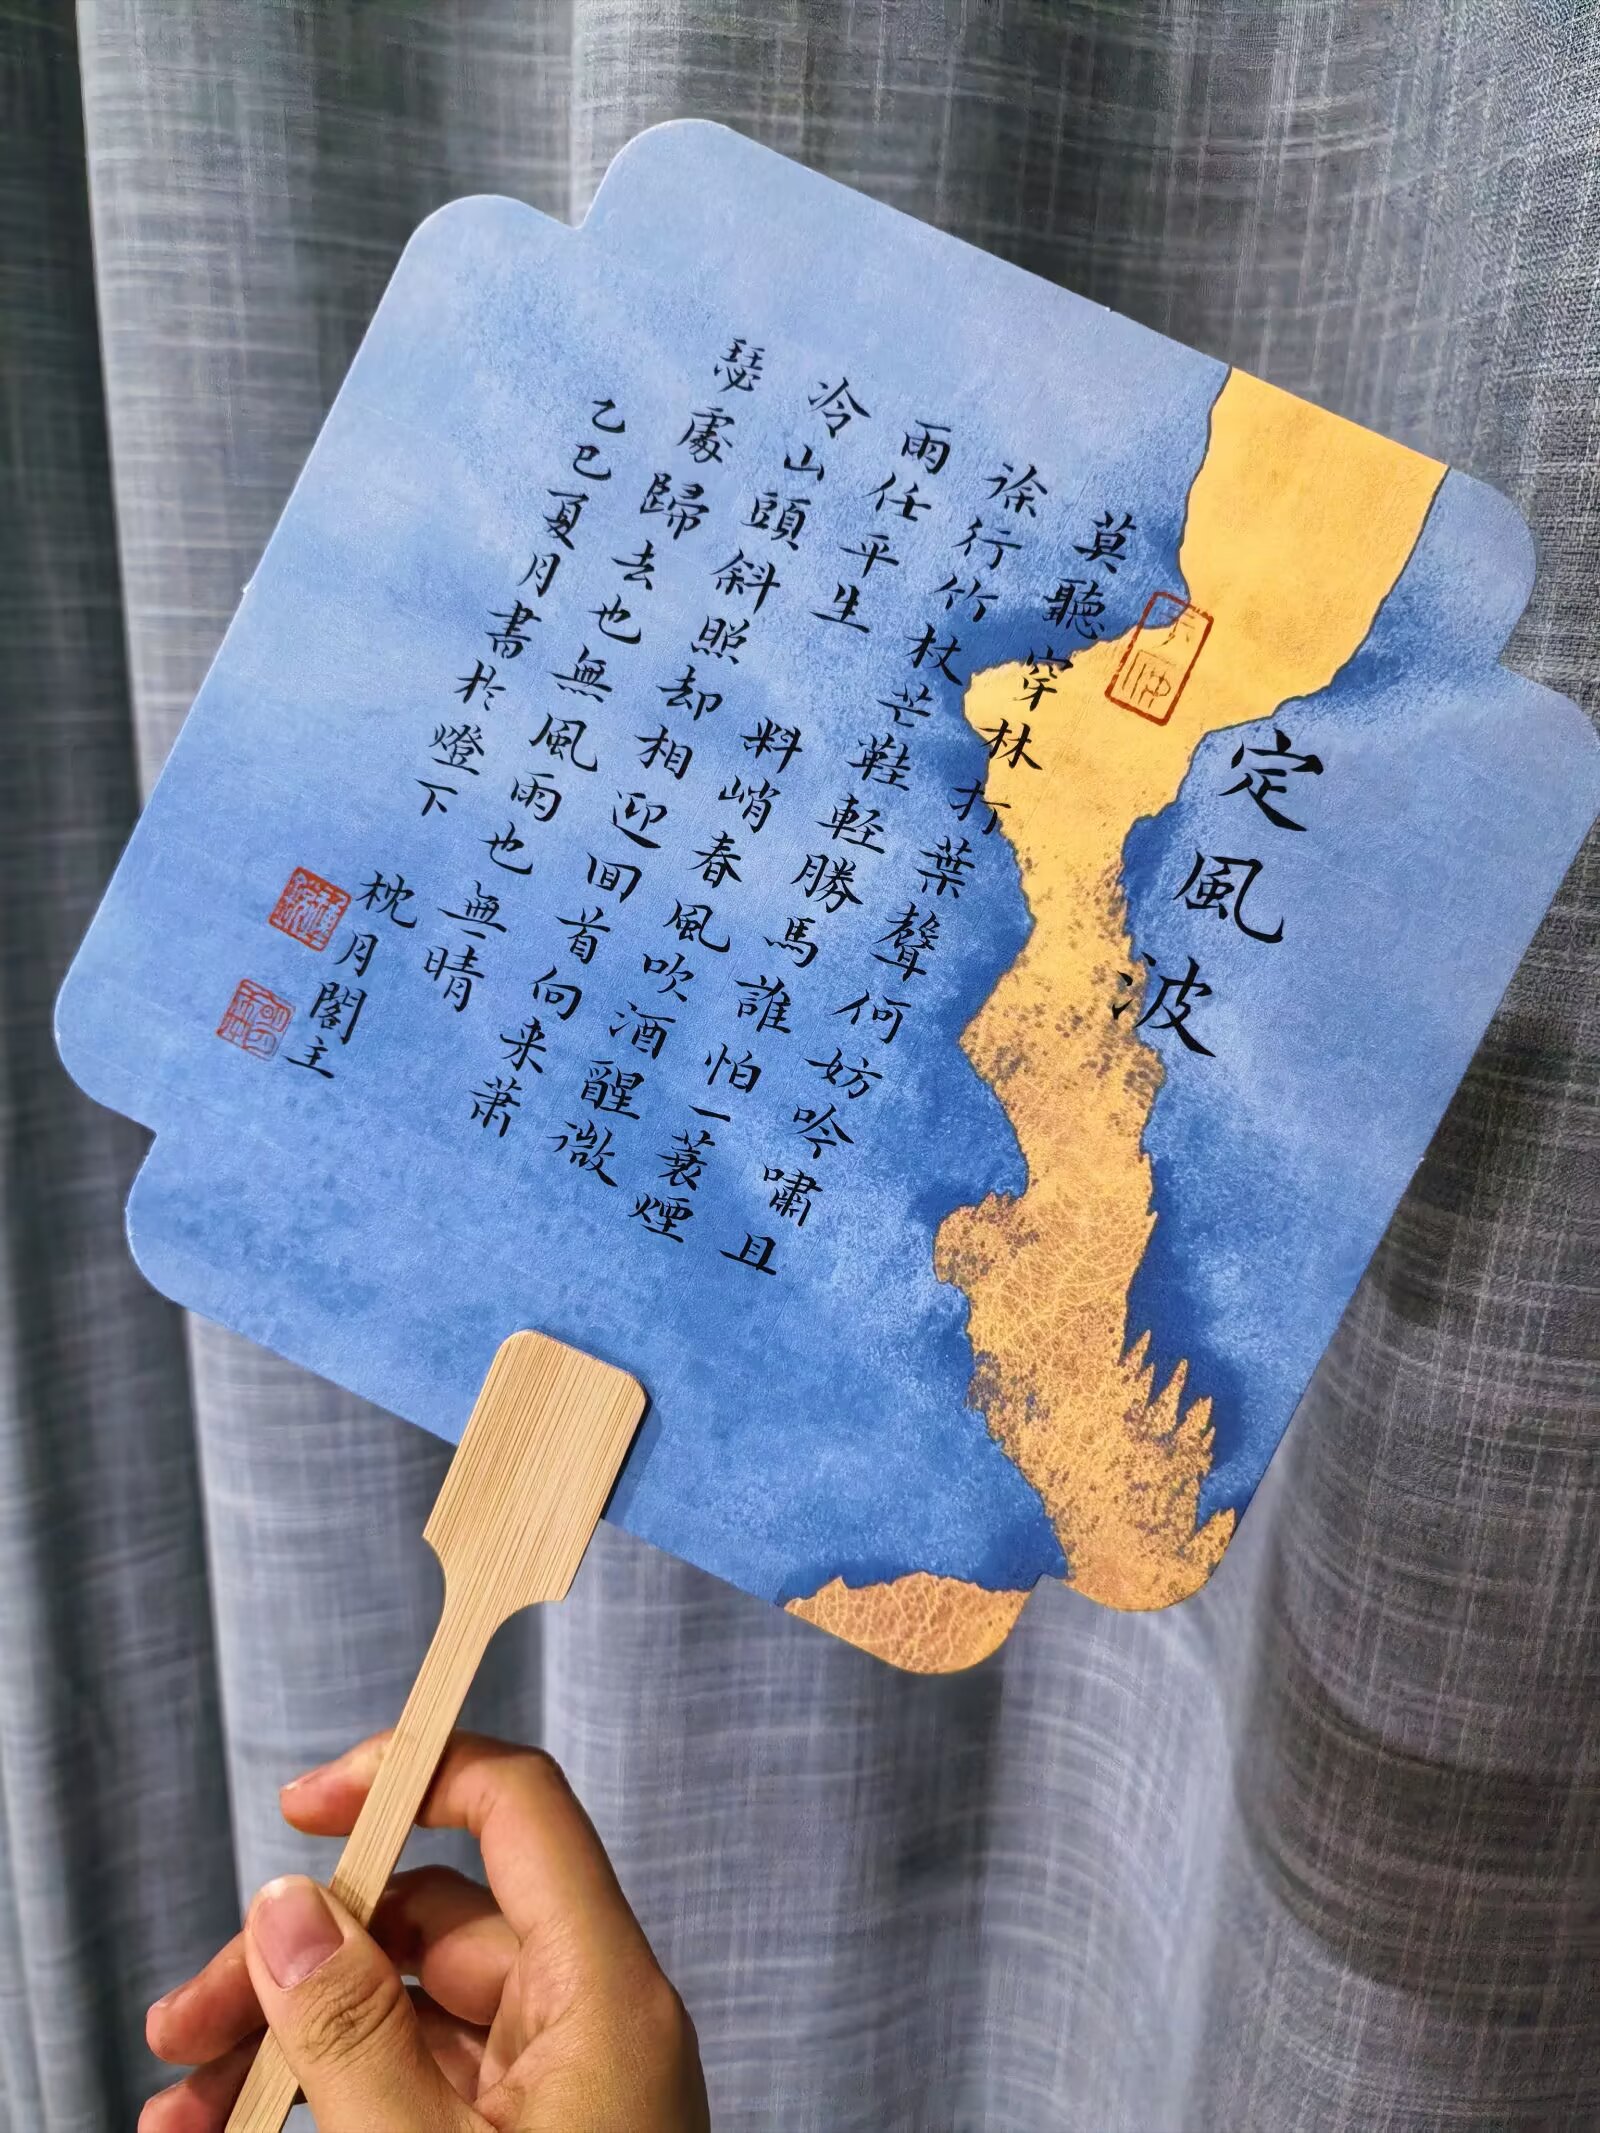 定風波
莫聽穿林打葉聲何妨吟嘯且
徐行竹杖芒鞋輕勝馬誰怕一蓑煙
雨任平生 料峭春風吹酒醒微
冷山頭斜照却相迎回首向来蕭
瑟處歸去也無風雨也無晴
乙巳夏月書於燈下
枕月閣主